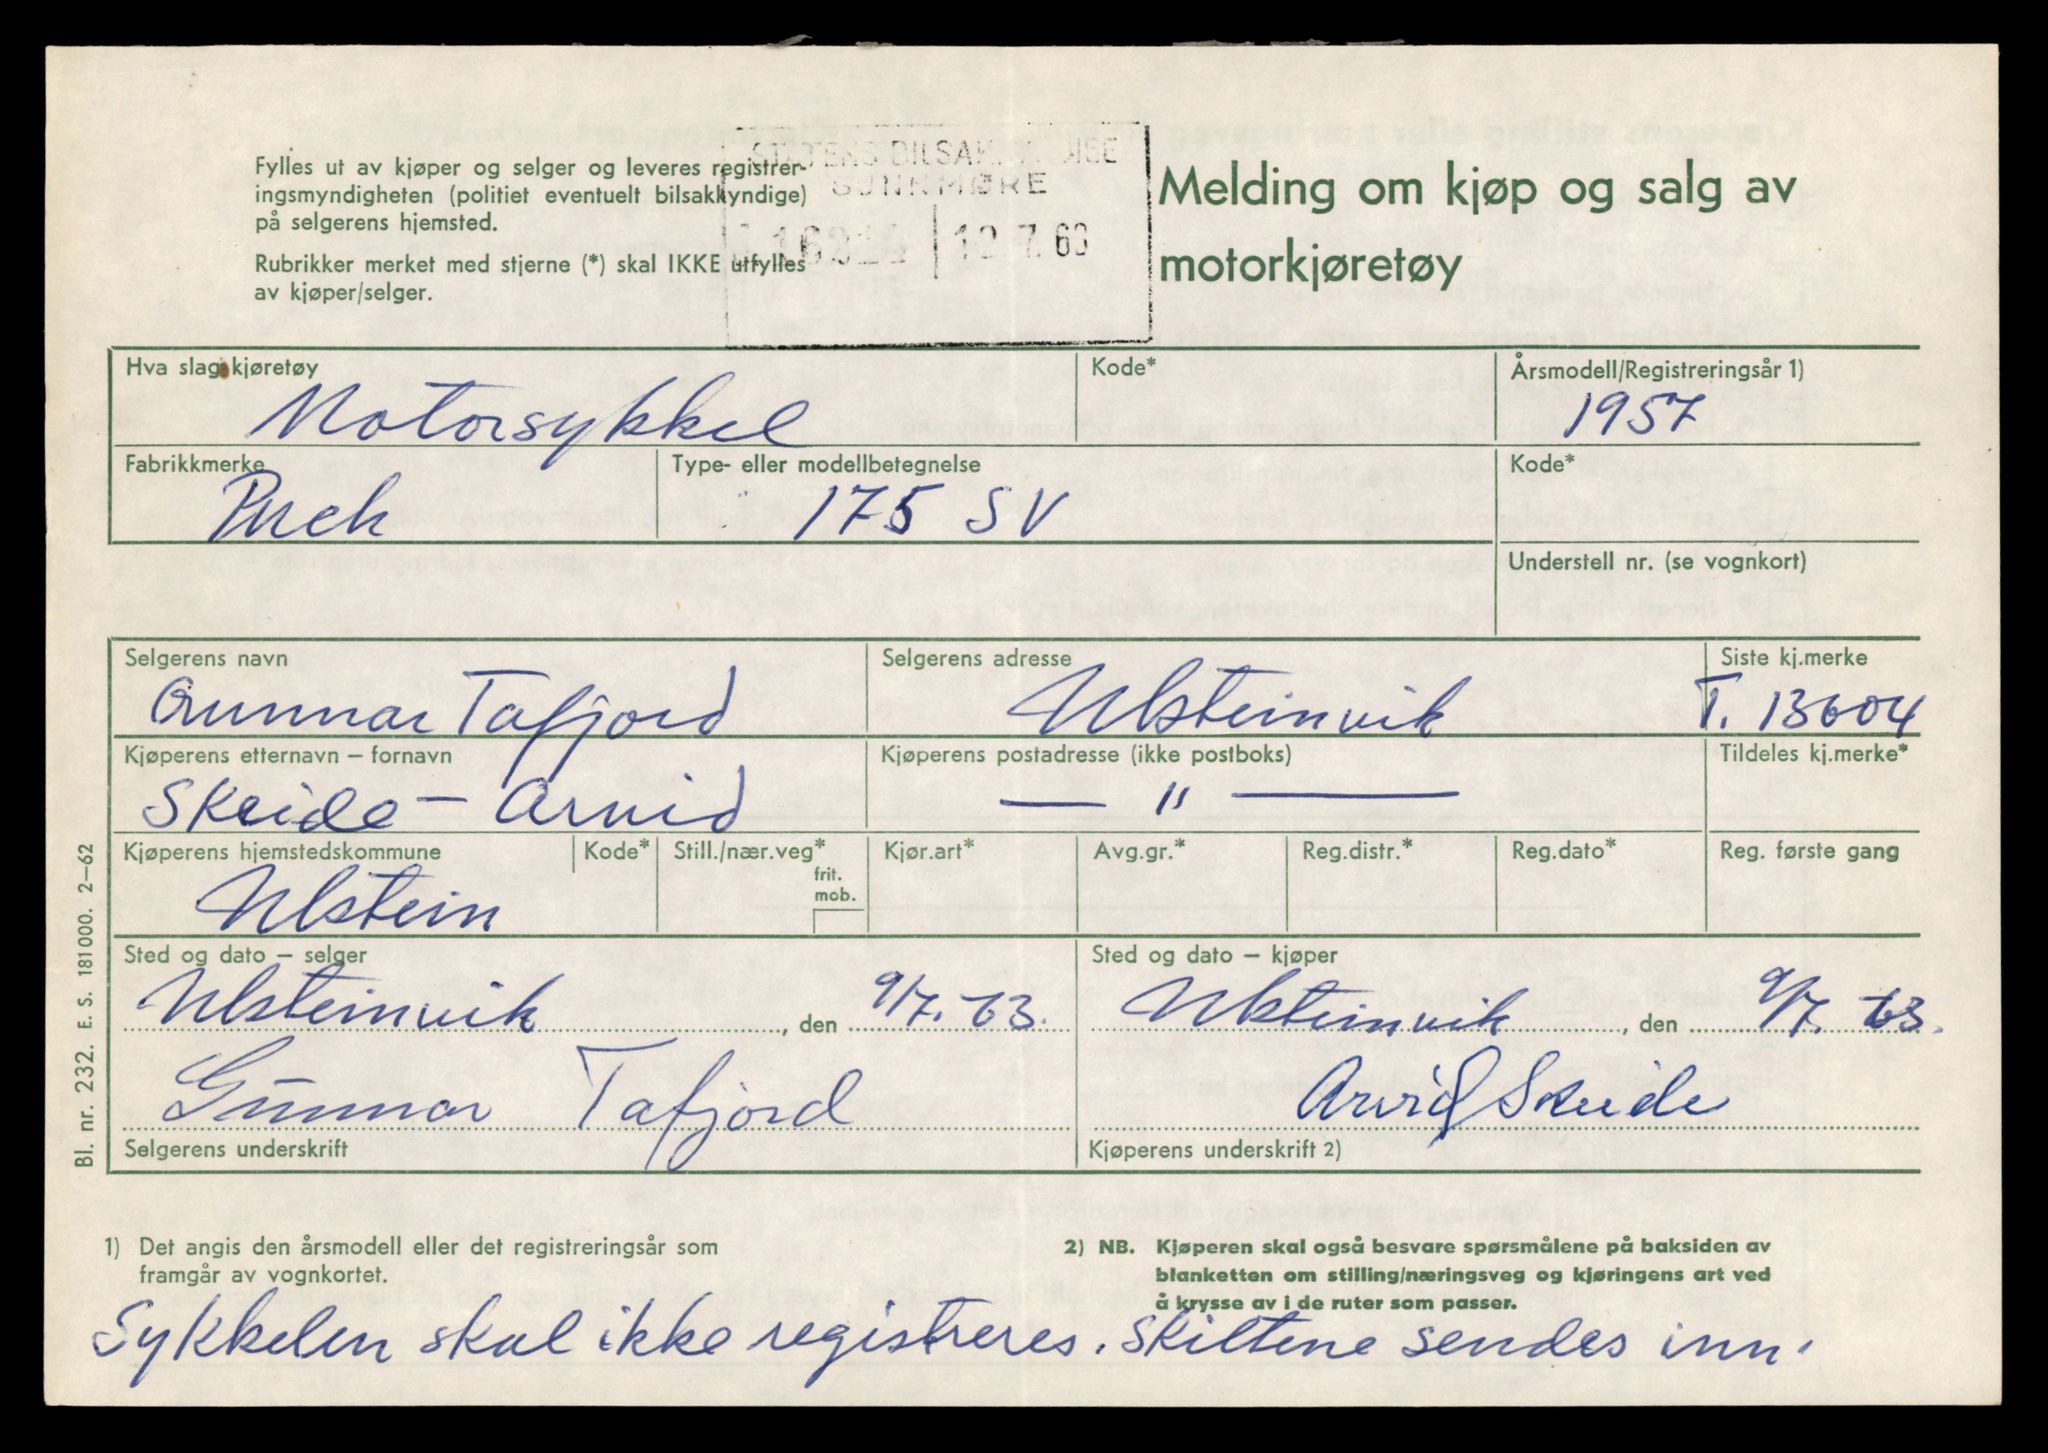 Fylles ut av kjøper og selger og leveres registrer-
ingsmyndigheten (politiet eventuelt bilsakkyndige)
på selgerens hjemsted.
Rubrikker merket med stjerne (*) skal IKKE utfylles
av kjøper/selger.
STATENS BILSAKKYNDIGE
SUNNMØRE
12.7.63
Melding om kjøp og salg av
motorkjøretøy
Hva slag kjøretøy
Kode*
Årsmodell/Registreringsår 1)
Motorsykkel
1957
Fabrikkmerke
Type- eller modellbetegnelse
Kode*
Puch
175 SV
Understell nr. (se vognkort)
Selgerens navn
Selgerens adresse
Siste kj.merke
Gunnar Tafjord
Ulsteinvik
T. 13604
Kjøperens etternavn – fornavn
Kjøperens postadresse (ikke postboks)
Tildeles kj.merke*
Skeide – Arvid
— " —
Kjøperens hjemstedskommune
Kode*
Still./nær.veg*
frit.
mob.
Kjør.art*
Avg.gr.*
Reg.distr.*
Reg.dato*
Reg. første gang
Ulstein
Sted og dato – selger
Sted og dato – kjøper
Ulsteinvik, den 9/7.-63.
Ulsteinvik, den 9/7. 63.
Gunnar Tafjord
Arvid Skeide
Selgerens underskrift
Kjøperens underskrift 2)
Bl. nr. 232. E. S. 181000. 2–62
1) Det angis den årsmodell eller det registreringsår som
framgår av vognkortet.
2) NB. Kjøperen skal også besvare spørsmålene på baksiden av
blanketten om stilling/næringsveg og kjøringens art ved
å krysse av i de ruter som passer.
Sykkelen skal ikke registreres. Skiltene sendes inn.